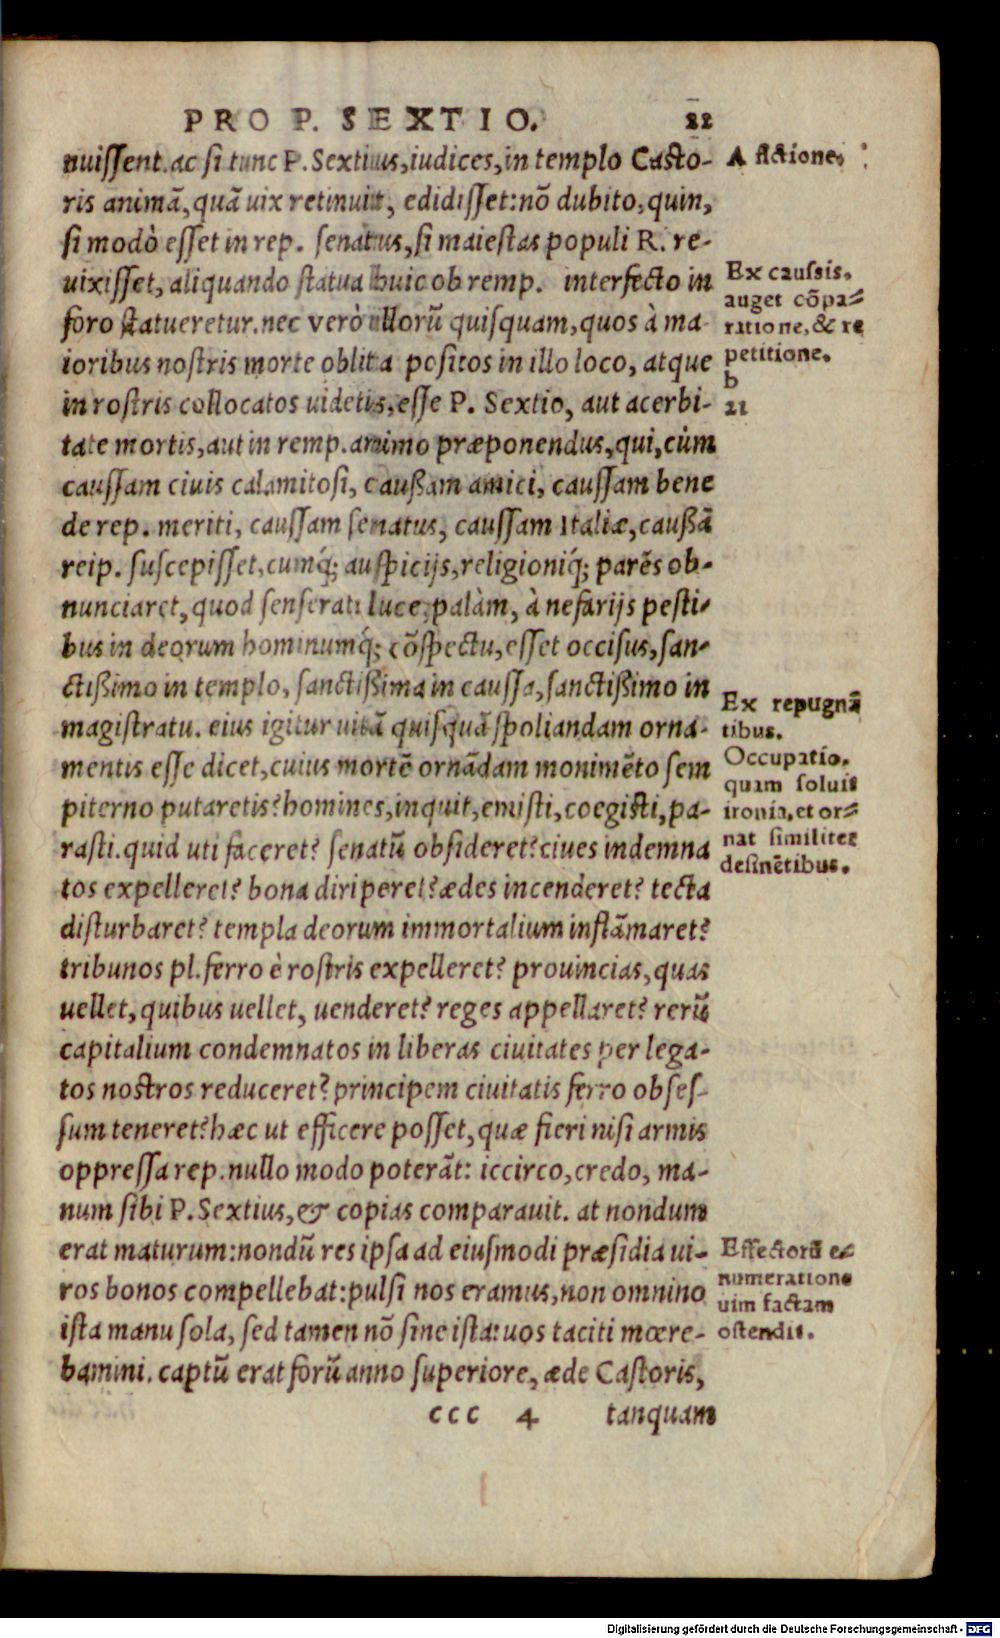 PRO P. SEXTIO. 22
nuissent. ac si tunc P. Sextius, iudices, in templo Casto-
ris animā, quā uix retinuit, edidisset: nō dubito, quin,
si modò esset in rep. senatus, si maiestas populi R. re-
uixisset, aliquando statua huic ob remp. interfecto in
foro statueretur. nec verò illorū quisquam, quos à ma-
ioribus nostris morte oblita positos in illo loco, atque
in rostris collocatos uidetis, esse P. Sextio, aut acerbi-
tate mortis, aut in remp. animo præponendus, qui, cùm
caussam ciuis calamitosi, caußam amici, caussam bene
de rep. meriti, caussam senatus, caussam Italiæ, caußā
reip. suscepisset, cumq́; auspicijs, religioniq́; parēs ob-
nunciaret, quod senserat: luce, palàm, à nefarijs pesti-
bus in deorum hominumq́; cōspectu, esset occisus, san-
ctißimo in templo, sanctißima in caussa, sanctißimo in
magistratu. eius igitur uitā quisquā spoliandam orna-
mentis esse dicet, cuius mortē ornādam monimēto sem
piterno putaretis? homines, inquit, emisti, coegisti, pa-
rasti. quid uti faceret? senatū obsideret? ciues indemna
tos expelleret? bona diriperet? ædes incenderet? tecta
disturbaret? templa deorum immortalium inflāmaret?
tribunos pl. ferro è rostris expelleret? prouincias, quas
uellet, quibus uellet, uenderet? reges appellaret? rerū
capitalium condemnatos in liberas ciuitates per lega-
tos nostros reduceret? principem ciuitatis ferro obses-
sum teneret? hæc ut efficere posset, quæ fieri nisi armis
oppressa rep. nullo modo poterāt: iccirco, credo, ma-
num sibi P. Sextius, & copias comparauit. at nondum
erat maturum: nondū res ipsa ad eiusmodi præsidia ui-
ros bonos compellebat: pulsi nos eramus, non omnino
ista manu sola, sed tamen nō sine ista: uos taciti mœre-
bamini. captū erat forū anno superiore, æde Castoris,
ccc 4 tanquam
A fictione.
Ex caussis.
auget cōpa-
ratione, & re
petitione.
b
21
Ex repugnā
tibus.
Occupatio.
quam soluit
ironia, et or-
nat similiter
desinētibus.
Effectorū e-
numeratione
uim factam
ostendit.
Digitalisierung gefördert durch die Deutsche Forschungsgemeinschaft - DFG